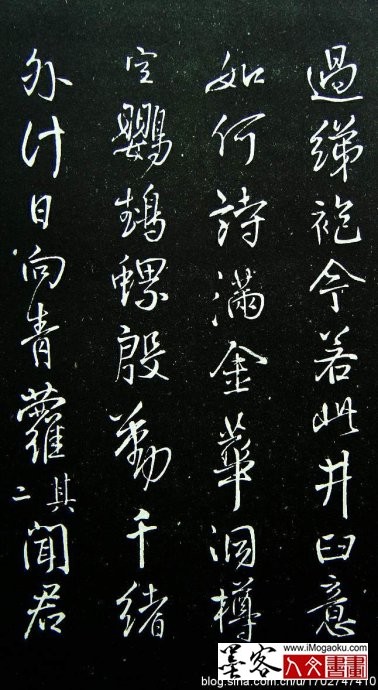 過綈袍今若此井臼意
如何詩滿金華洞樽
空鸚鵡螺殷勤千緒
外計日向青蘿
其二
聞君
墨客
www.iMogaoku.com
人文書畫
blog.sina.com.cn/u/1702747410